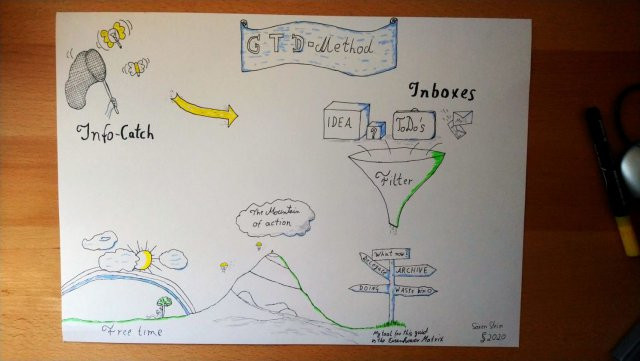 GTD-Method
Inboxes
Info-Catch
IDEA
?
ToDo's
Filter
The Mountain
of action
What now?
ARCHIVE
DOING
Free time
My tool for this point
is the Eisenhower Matrix
2020